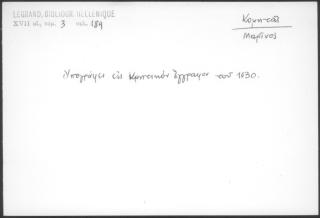 LEGRAND, BIBLIOGR. HELLENIQUE
XVII αἰ., τόμ. 3 σελ. 189
Κομητᾶς
Μαρῖνος
Ὑπογράφει εἰς κρητικὸν ἔγγραφον τοῦ 1630.